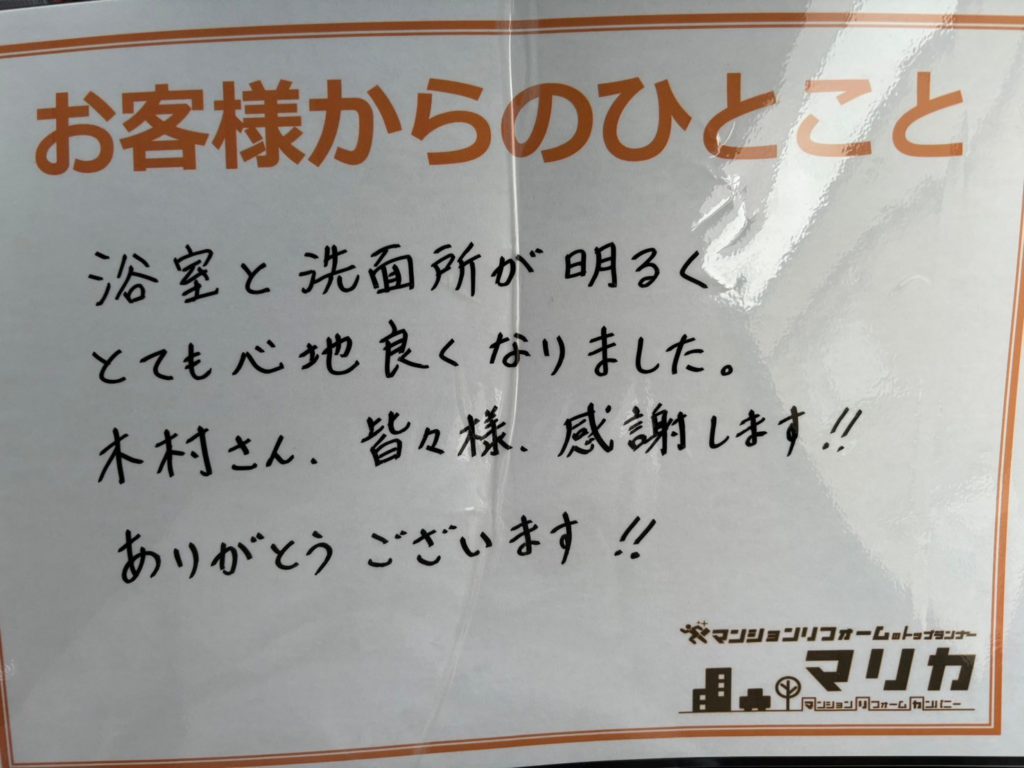 お客様からのひとこと
浴室と洗面所が明るく
とても心地良くなりました。
木村さん、皆々様、感謝します!!
ありがとうございます!!
マンションリフォームのトップランナー
マリカ
マンションリフォームカンパニー